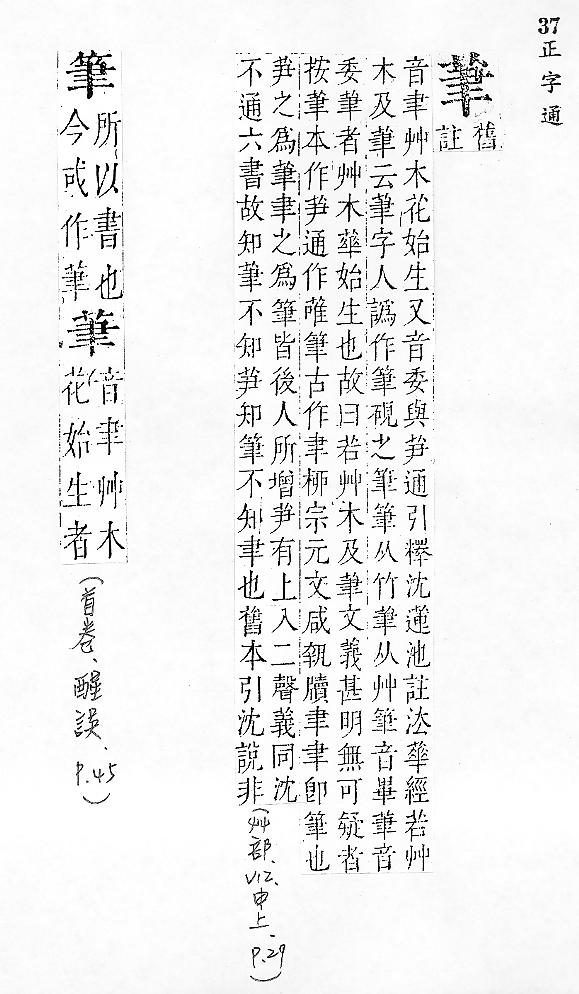 37 正字通
茟
舊
註
音聿艸木花始生又音委與芛通引釋沈蓮池註法華經若艸
木及茟云茟字人譌作筆硯之筆筆从竹茟从艸筆音畢茟音
委茟者艸木華始生也故曰若艸木及茟文義甚明無可疑者
按茟本作芛通作蓶筆古作聿栁宗元文咸執牘聿聿卽筆也
芛之爲茟聿之爲筆皆後人所增芛有上入二聲義同沈
不通六書故知茟不知芛知筆不知聿也舊本引沈說非
(艸部、V12、申上、P.29)
筆
所以書也
今或作茟
茟
音聿艸木
花始生者
(首卷、醒誤、P.45)